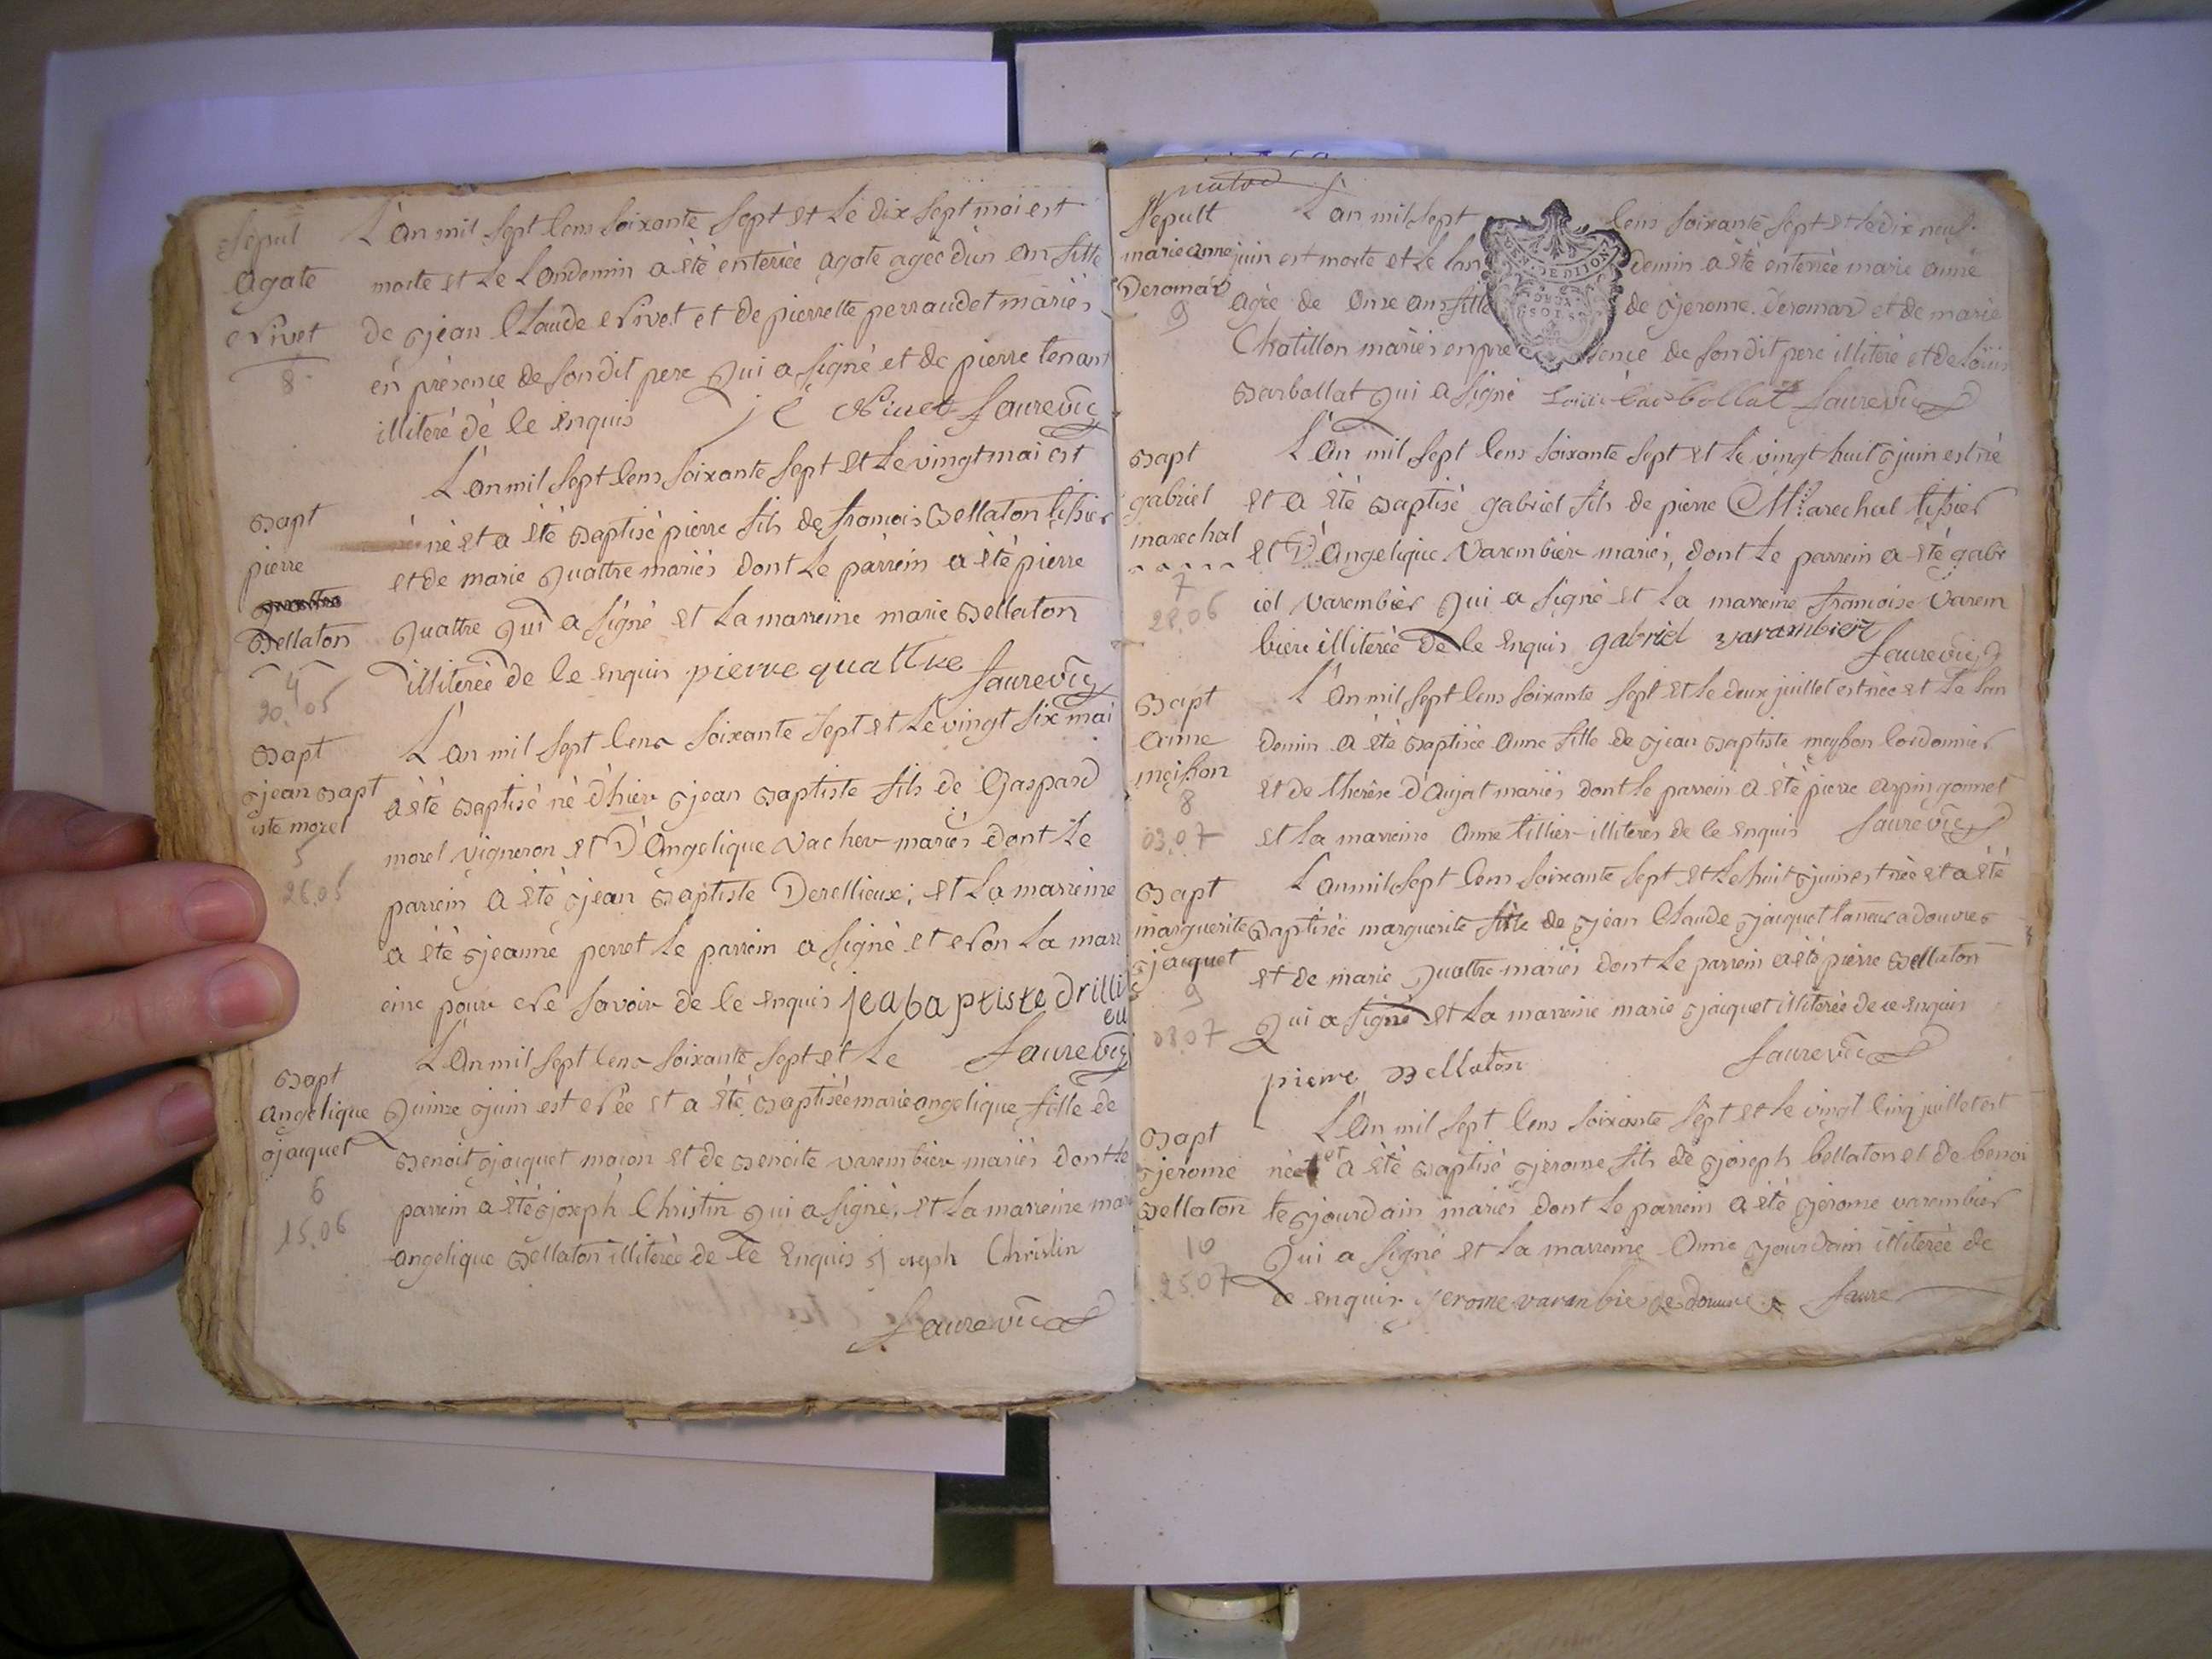 Sepul
agate
Nivet
8
L'an mil sept cens soixante sept et le dix sept mai est
morte et le landemin a été enterrée agate agée d'un an fille
de jean Claude Nivet et de pierrette perraudet mariés
en présence de son dit pere qui a signé et de pierre tenant
illiteré de ce enquis J C Nivet faure vic
Bapt
pierre
Bellaton
4
20.05
L'an mil sept cens soixante sept et le vingt mai est
né et a été Baptisé pierre fils de francois Bellaton tissier
et de marie quattre mariés dont le parrein a été pierre
quattre qui a signé et la marreine marie Bellaton
illiterée de ce enquis pierre quattre faure vic
Bapt
jean Bapt
iste morel
5
26.05
L'an mil sept cens soixante sept et le vingt six mai
a été Baptisé né d'hier jean Baptiste fils de Gaspard
morel vigneron et D'Angelique vacher mariés dont le
parrein a été jean Baptiste Derellieux; et la marreine
a été jeanne perret le parrein a signé et non la marr
eine pour ne savoir de ce enquis jeabaptiste drilli
eu
faure vic
Bapt
angelique
jacquet
6
15.06
L'An mil sept cens soixante sept et le
quinze juin est née et a été Baptisée marie angelique fille de
Benoit jacquet maçon et de Benoite varembier mariés dont le
parrein a été joseph Christin qui a signé; et la marreine mar
angelique Bellaton illiterée de ce enquis joseph Christin
faure vic
Sepult
marie anne
Deromar
9
L'an mil sept cens soixante sept et le dix neuf
juin est morte et le lan demin a été enterrée marie anne
agée de onze ans fille de jerome deromar et de marie
Chatillon mariés en pre sence de son dit pere illiteré et de louis
Barbollat qui a signé Louis barbollat faure vic
Bapt
gabriel
marechal
7
28.06
L'An mil sept cens soixante sept et le vingt huit juin est né
et a été Baptisé gabriel fils de pierre Marechal tissier
et D'Angelique varembier mariés, dont le parrein a été gabr
iel varembier qui a signé et la marreine francoise varem
bier illiterée de ce enquis gabriel varambier
faure vic
Bapt
anne
meisson
8
03.07
L'An mil sept cens soixante sept et le deux juillet est née et le lan
demin a été Baptisée anne fille de jean Baptiste meysson cordonnier
et de therèse d'Aujat mariés dont le parrein a été pierre arpin gonnet
et la marreine anne tillier illiterés de ce enquis faure vic
Bapt
marguerite
jacquet
9
08.07
L'an mil sept cens soixante sept et le huit juin est née et a été
Baptisée marguerite fille de jean Claude jacquet tanneur a douvres
et de marie quattre mariés dont le parrein a été pierre Bellaton
qui a signé et la marreine marie jacquet illiterée de ce enquis
pierre Bellaton faure vic
Bapt
jerome
Bellaton
10
25.07
L'An mil sept cens soixante sept et le vingt cinq juillet est
né et a été Baptisé jerome fils de joseph bellaton et de benoi
te jourdain mariés dont le parrein a été jerome varembier
qui a signé et la marreine Anne jourdain illiterée de
ce enquis jerome varanbie de douvre faure